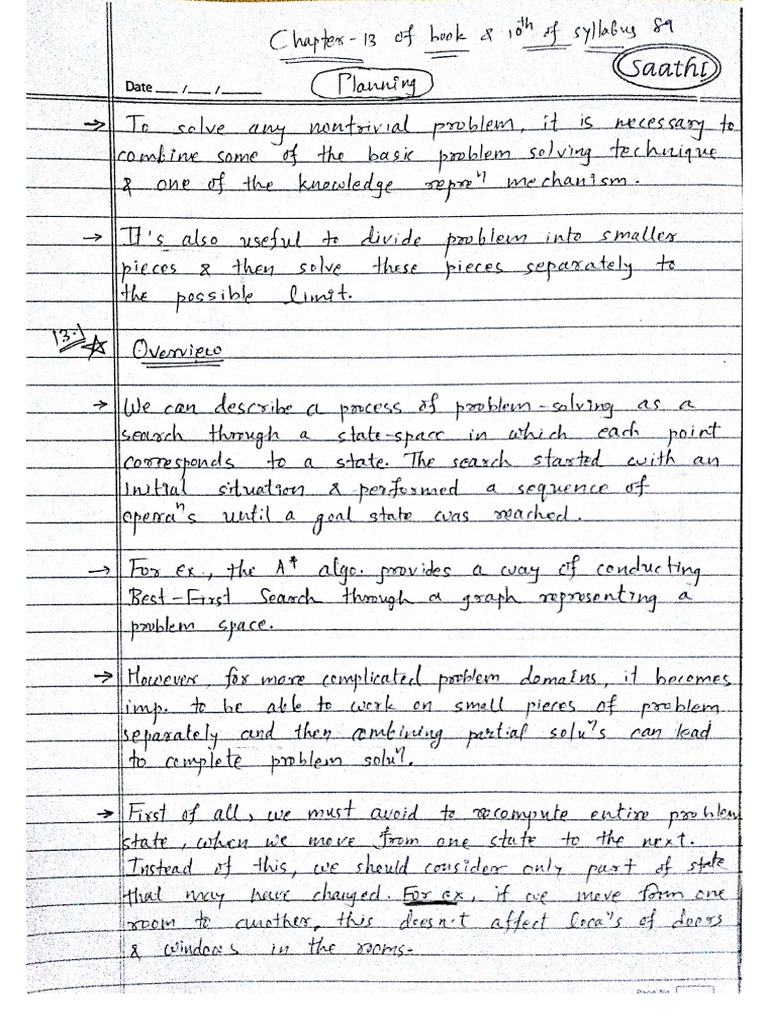 Chapter-13 of book & 10th of syllabus 89
Saathi
Date __ /__ /____
Planning
→ To solve any nontrivial problem, it is necessary to
combine some of the basic problem solving technique
& one of the knowledge repreⁿ mechanism.
→ It's also useful to divide problem into smaller
pieces & then solve these pieces separately to
the possible limit.
13.1 ☆ Overview
→ We can describe a process of problem-solving as a
search through a state-space in which each point
corresponds to a state. The search started with an
initial situation & performed a sequence of
operaⁿs until a goal state was reached.
→ For ex., the A* algo. provides a way of conducting
Best-First Search through a graph representing a
problem space.
→ However, for more complicated problem domains, it becomes
imp. to be able to work on small pieces of problem
separately and then combining partial soluⁿs can lead
to complete problem soluⁿ.
→ First of all, we must avoid to recompute entire problem
state, when we move from one state to the next.
Instead of this, we should consider only part of state
that may have changed. For ex, if we move form one
room to another, this doesn't affect locaⁿs of doors
& windows in the rooms.
Page No